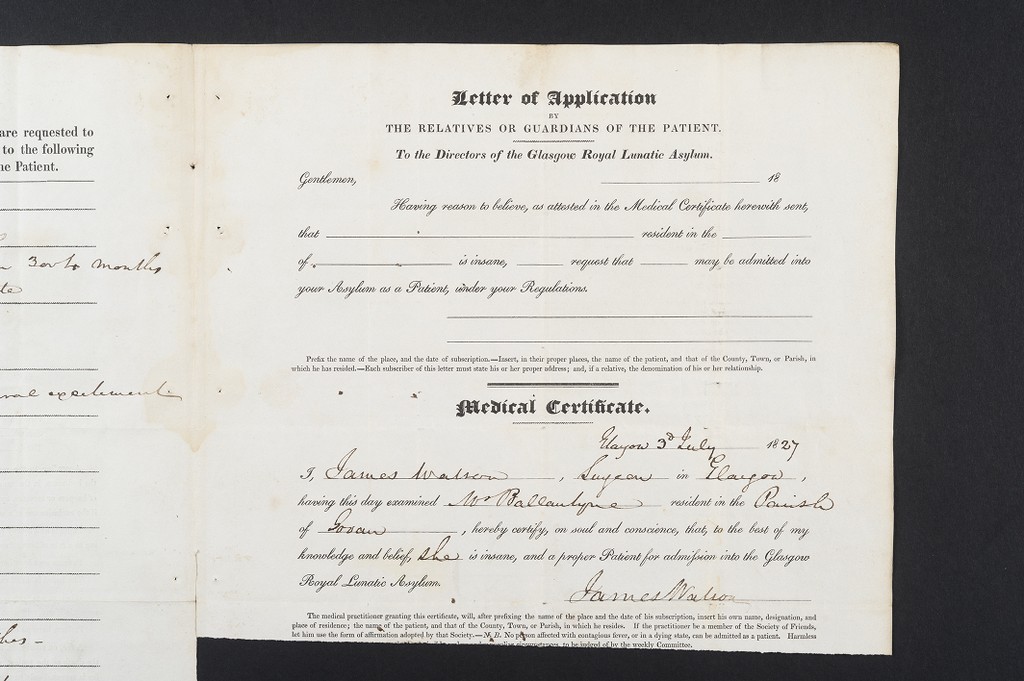 are requested to
to the following
he Patient.
3 or 4 months
Letter of Application
BY
THE RELATIVES OR GUARDIANS OF THE PATIENT.
To the Directors of the Glasgow Royal Lunatic Asylum.
Gentlemen, 18
Having reason to believe, as attested in the Medical Certificate herewith sent,
that resident in the
of is insane, request that may be admitted into
your Asylum as a Patient, under your Regulations.
Prefix the name of the place, and the date of subscription.—Insert, in their proper places, the name of the patient, and that of the County, Town, or Parish, in
which he has resided.—Each subscriber of this letter must state his or her proper address; and, if a relative, the denomination of his or her relationship.
Medical Certificate.
Glasgow 3d July 1827
I, James Watson, Surgeon in Glasgow,
having this day examined Mrs Ballantyne resident in the Parish
of Govan, hereby certify, on soul and conscience, that, to the best of my
knowledge and belief, she is insane, and a proper Patient for admission into the Glasgow
Royal Lunatic Asylum.
James Watson
The medical practitioner granting this certificate, will, after prefixing the name of the place and the date of his subscription, insert his own name, designation, and
place of residence; the name of the patient, and that of the County, Town, or Parish, in which he resides. If the practitioner be a member of the Society of Friends,
let him use the form of affirmation adopted by that Society.—N. B. No person affected with contagious fever, or in a dying state, can be admitted as a patient. Harmless
circumstances, to be judged of by the weekly Committee.